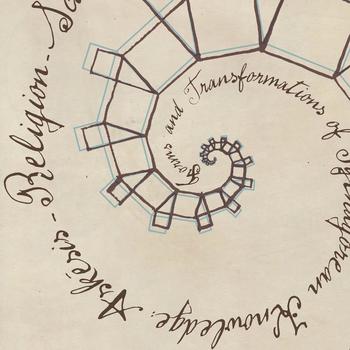 Forms and Transformations of Pythagorean Knowledge.
Askēsis - Religion -